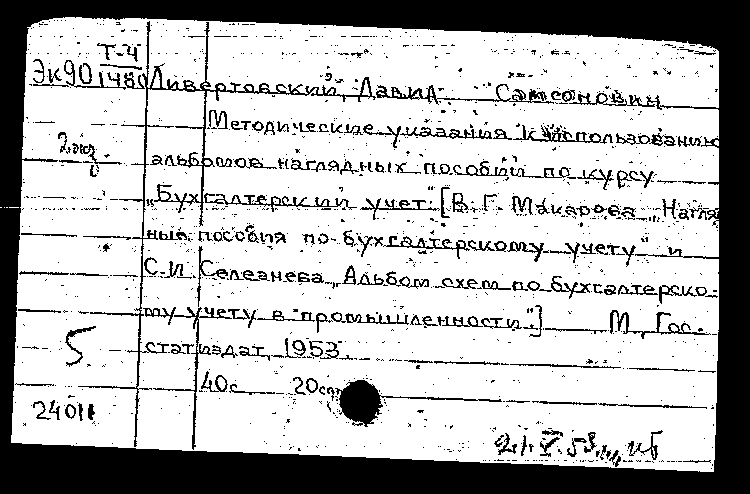 Т-4
Эк90 1480 Ливертовский, Давид Самсонович
Методические указания к использованию
2 экз. альбомов наглядных пособий по курсу
„Бухгалтерский учет". [В. Г. Макарова „Нагляд
ные пособия по бухгалтерскому учету" и
С. И. Селезнева „Альбом схем по бухгалтерско-
му учету в промышленности".] М., Гос-
5 статиздат, 1953.
40 с. 20 см
24011
21.V.53